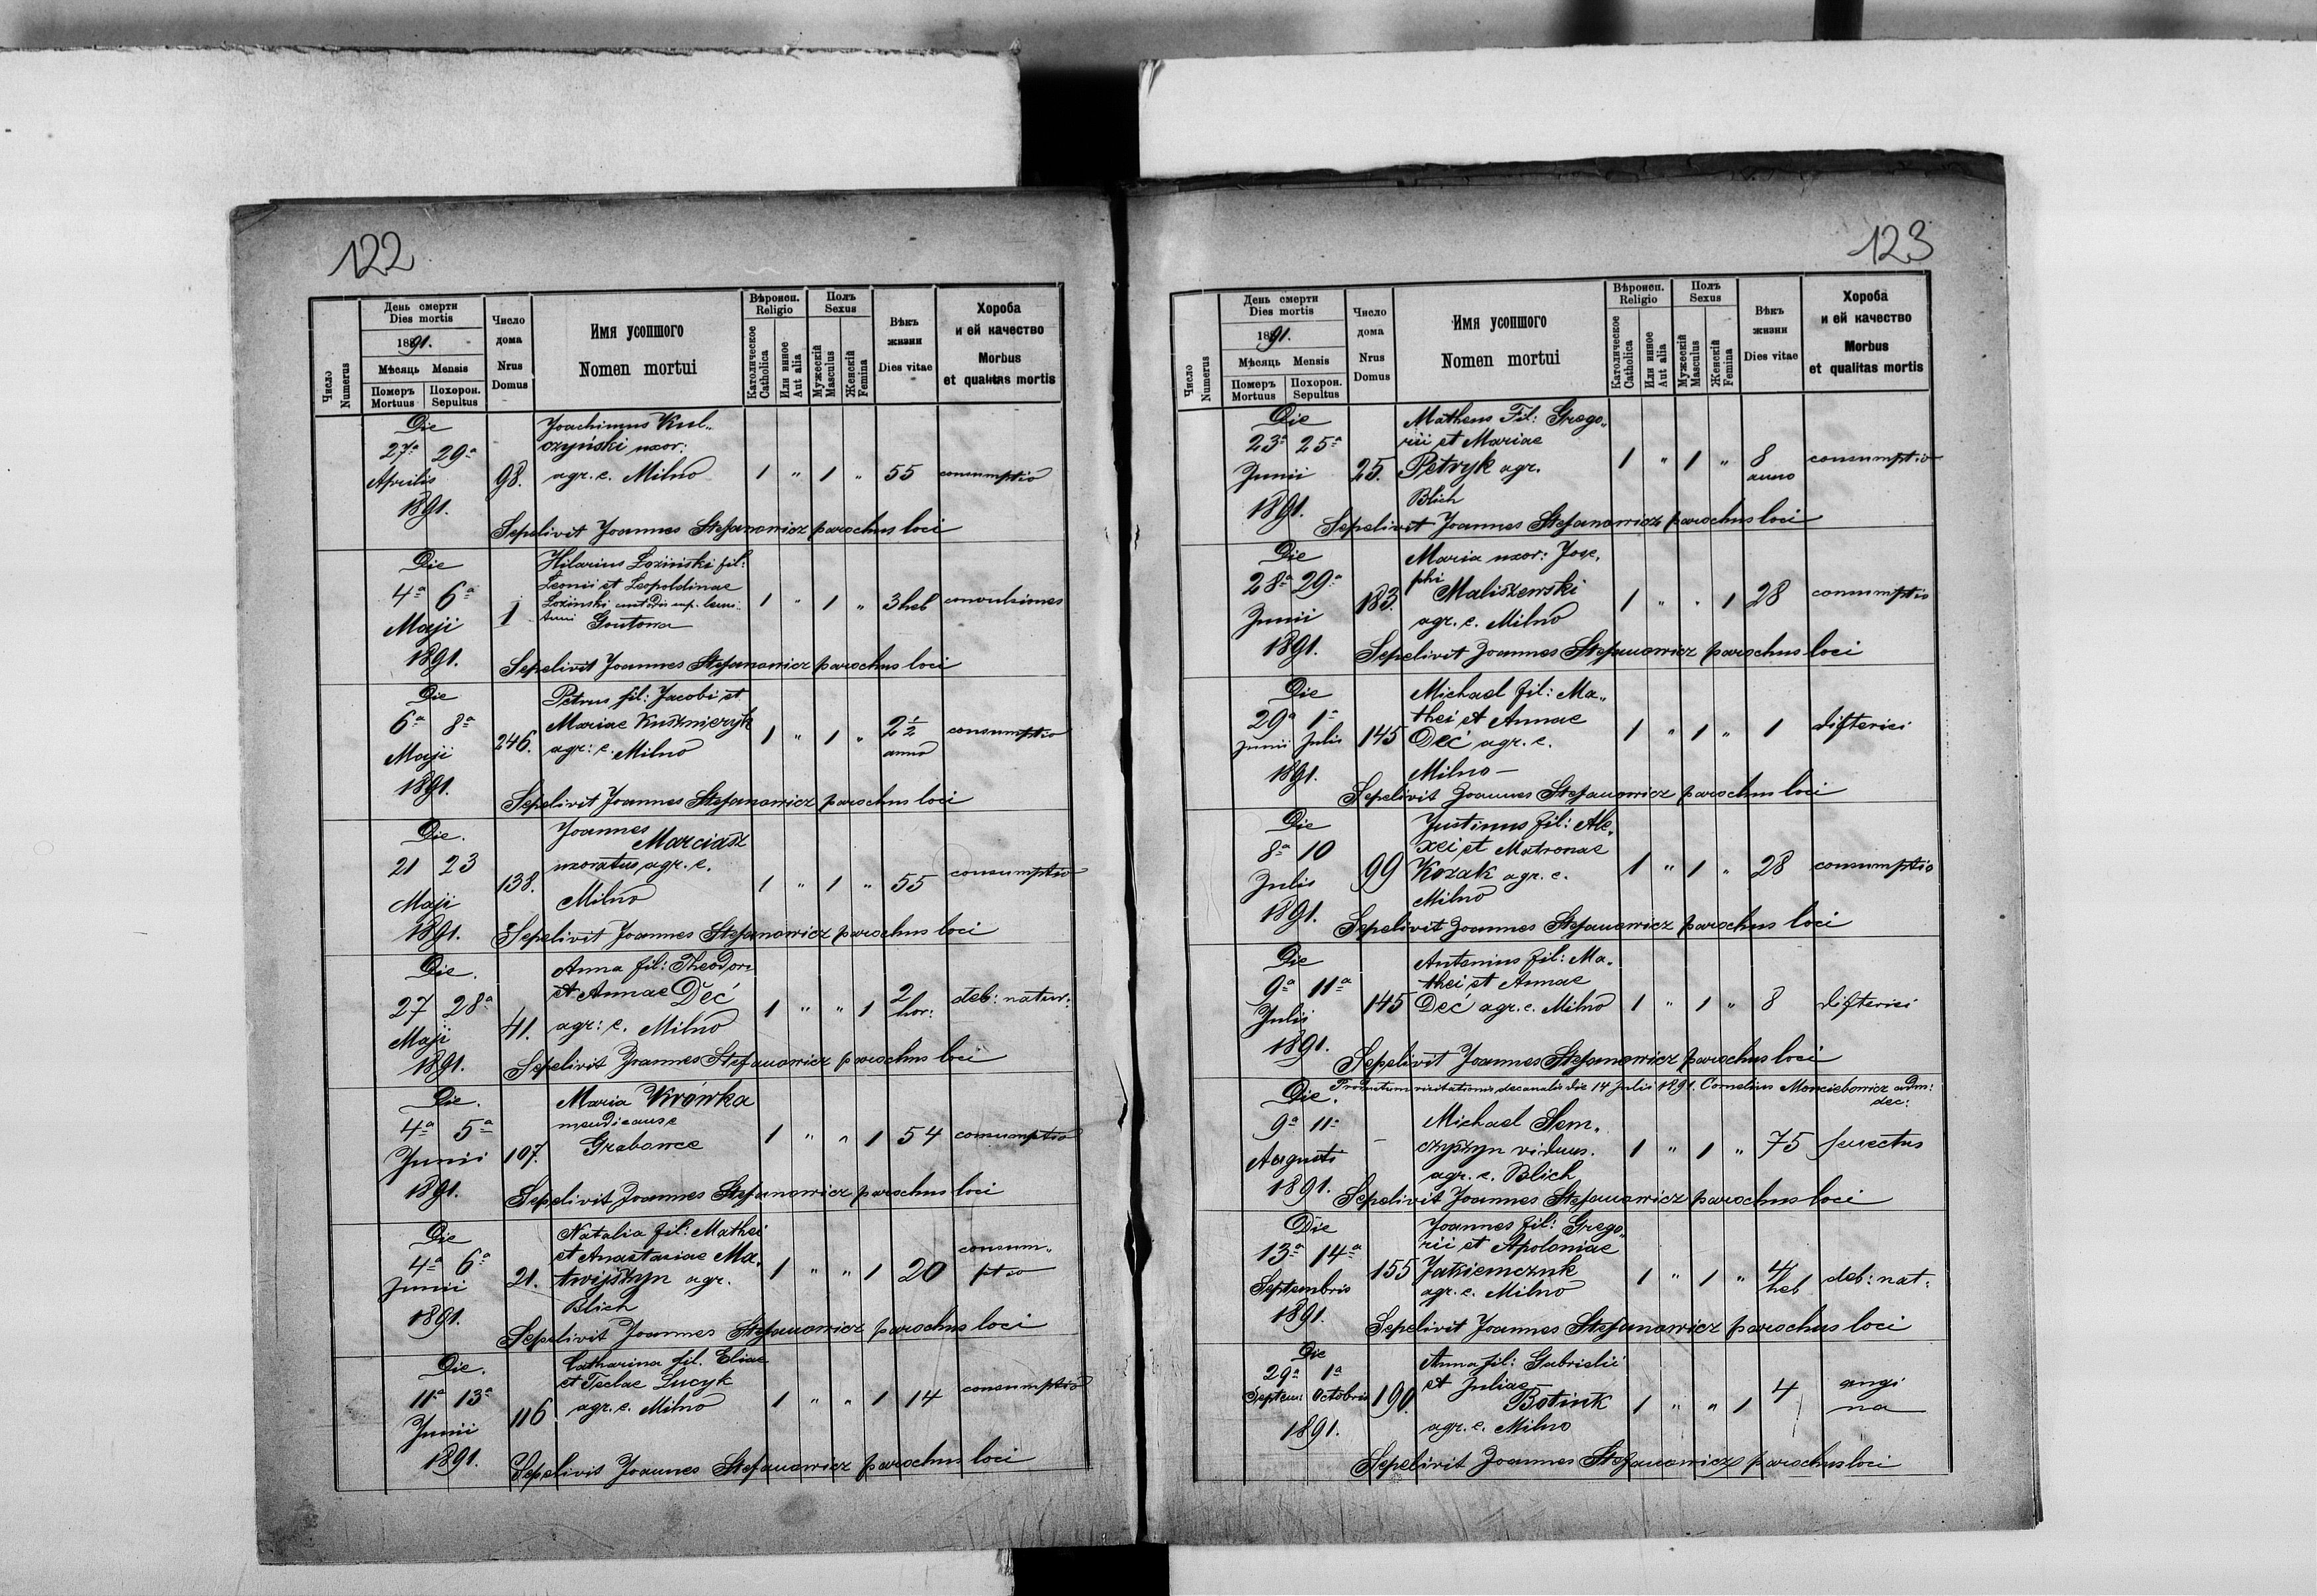 122
Число
Numerus
День смерти
Dies mortis
1891.
Мѣсяць Mensis
Померъ Mortuus
Похорон. Sepultus
Число дома
Nrus Domus
Имя усопшого
Nomen mortui
Вѣроисп.
Religio
Католическое Catholica
Или инное Aut alia
Полъ
Sexus
Мужескій Masculus
Женскій Femina
Вѣкъ жизни
Dies vitae
Хороба и ей качество
Morbus et qualitas mortis
Die Joachimus Kul„
27ª 29ª czyński uxor:
Aprilis 98. agr. c. Milno 1 " 1 " 55 consumptio
1891.
Sepelivit Joannes Stefanowicz parochus loci
Die Hilarius Loziński fil:
4ª 6ª Leonii et Leopoldinae
Maji 1 Loziński custodis 1 " 1 " 3 heb convulsiones
Gontowa
1891.
Sepelivit Joannes Stefanowicz parochus loci
Die Petrus fil: Jacobi et
6ª 8ª Mariae Kuszniezyk
Maji 246. agr: c. Milno 1 " 1 " 2½ anno consumptio
1891.
Sepelivit Joannes Stefanowicz parochus loci
Die. Joannes
21 23 Marciasz
Maji 138. uxoratus agr. c. 1 " 1 " 55 consumptio
Milno
1891.
Sepelivit Joannes Stefanowicz parochus loci
Die. Anna fil: Theodori
27 28ª et Annae Deć
Maji 41. agr: c. Milno 1 " " 1 2 hor: deb: natur:
1891.
Sepelivit Joannes Stefanowicz parochus loci
Die. Maria Krówka
4ª 5ª
Junii 107. Grabowce 1 " " 1 54 consumptio
1891.
Sepelivit Joannes Stefanowicz parochus loci
Die Natalia fil: Mathei
4ª 6ª et Anastasiae Ma„
Junii 21. twijszyn agr. 1 " " 1 20 consum„ptio
Blich
1891.
Sepelivit Joannes Stefanowicz parochus loci
Die. Catharina fil. Eliae
11ª 13ª et Teclae Lucyk
Junii 116 agr. c. Milno 1 " " 1 14 consumptio
1891.
Sepelivit Joannes Stefanowicz parochus loci
123
Число
Numerus
День смерти
Dies mortis
1891.
Мѣсяць Mensis
Померъ Mortuus
Похорон. Sepultus
Число дома
Nrus Domus
Имя усопшого
Nomen mortui
Вѣроисп.
Religio
Католическое Catholica
Или инное Aut alia
Полъ
Sexus
Мужескій Masculus
Женскій Femina
Вѣкъ жизни
Dies vitae
Хороба и ей качество
Morbus et qualitas mortis
Die Matheus Fil: Grego„
23ª 25ª rii et Mariae
Junii 25. Petryk agr. 1 " 1 " 8 anno consumptio
Blich
1891.
Sepelivit Joannes Stefanowicz parochus loci
Die Maria uxor: Jose„
28ª 29ª phi Maliszewski
Junii 183. agr. c. Milno 1 " " 1 28 consumptio
1891.
Sepelivit Joannes Stefanowicz parochus loci
Die Michael fil: Ma„
29ª 1ª thei et Annae
Junii Julii 145 Deć agr. c. 1 " 1 " 1 difterici
1891. Milno —
Sepelivit Joannes Stefanowicz parochus loci
Die Justinus fil: Ale„
8ª 10 xei et Matronae
Julii 99 Kozak agr. c. 1 " 1 " 28 consumptio
1891. Milno
Sepelivit Joannes Stefanowicz parochus loci
Die Antonius fil: Ma„
9ª 11ª thei et Annae
Julii 145 Deć agr. c. Milno 1 " 1 " 8 difterici
1891.
Sepelivit Joannes Stefanowicz parochus loci
Productum visitationis decanalis die 14 Julii 1891. Cornelius adm: dec:
Die. Michael Sem„
9ª 11ª
Augusti – czyszyn viduus. 1 " 1 " 75 senectus
1891. agr. c. Blich
Sepelivit Joannes Stefanowicz parochus loci
Die Joannes fil: Grego„
13ª 14ª rii et Apoloniae
Septembris 155 Jakiemczuk 1 " 1 " 4 heb deb: nat:
1891. agr. c. Milno
Sepelivit Joannes Stefanowicz parochus loci
Die Anna fil: Gabrielii
29ª 1ª et Juliae
Septem: Octobris 190. Botiuk 1 " " 1 4 angina
1891. agr. c. Milno
Sepelivit Joannes Stefanowicz parochus loci